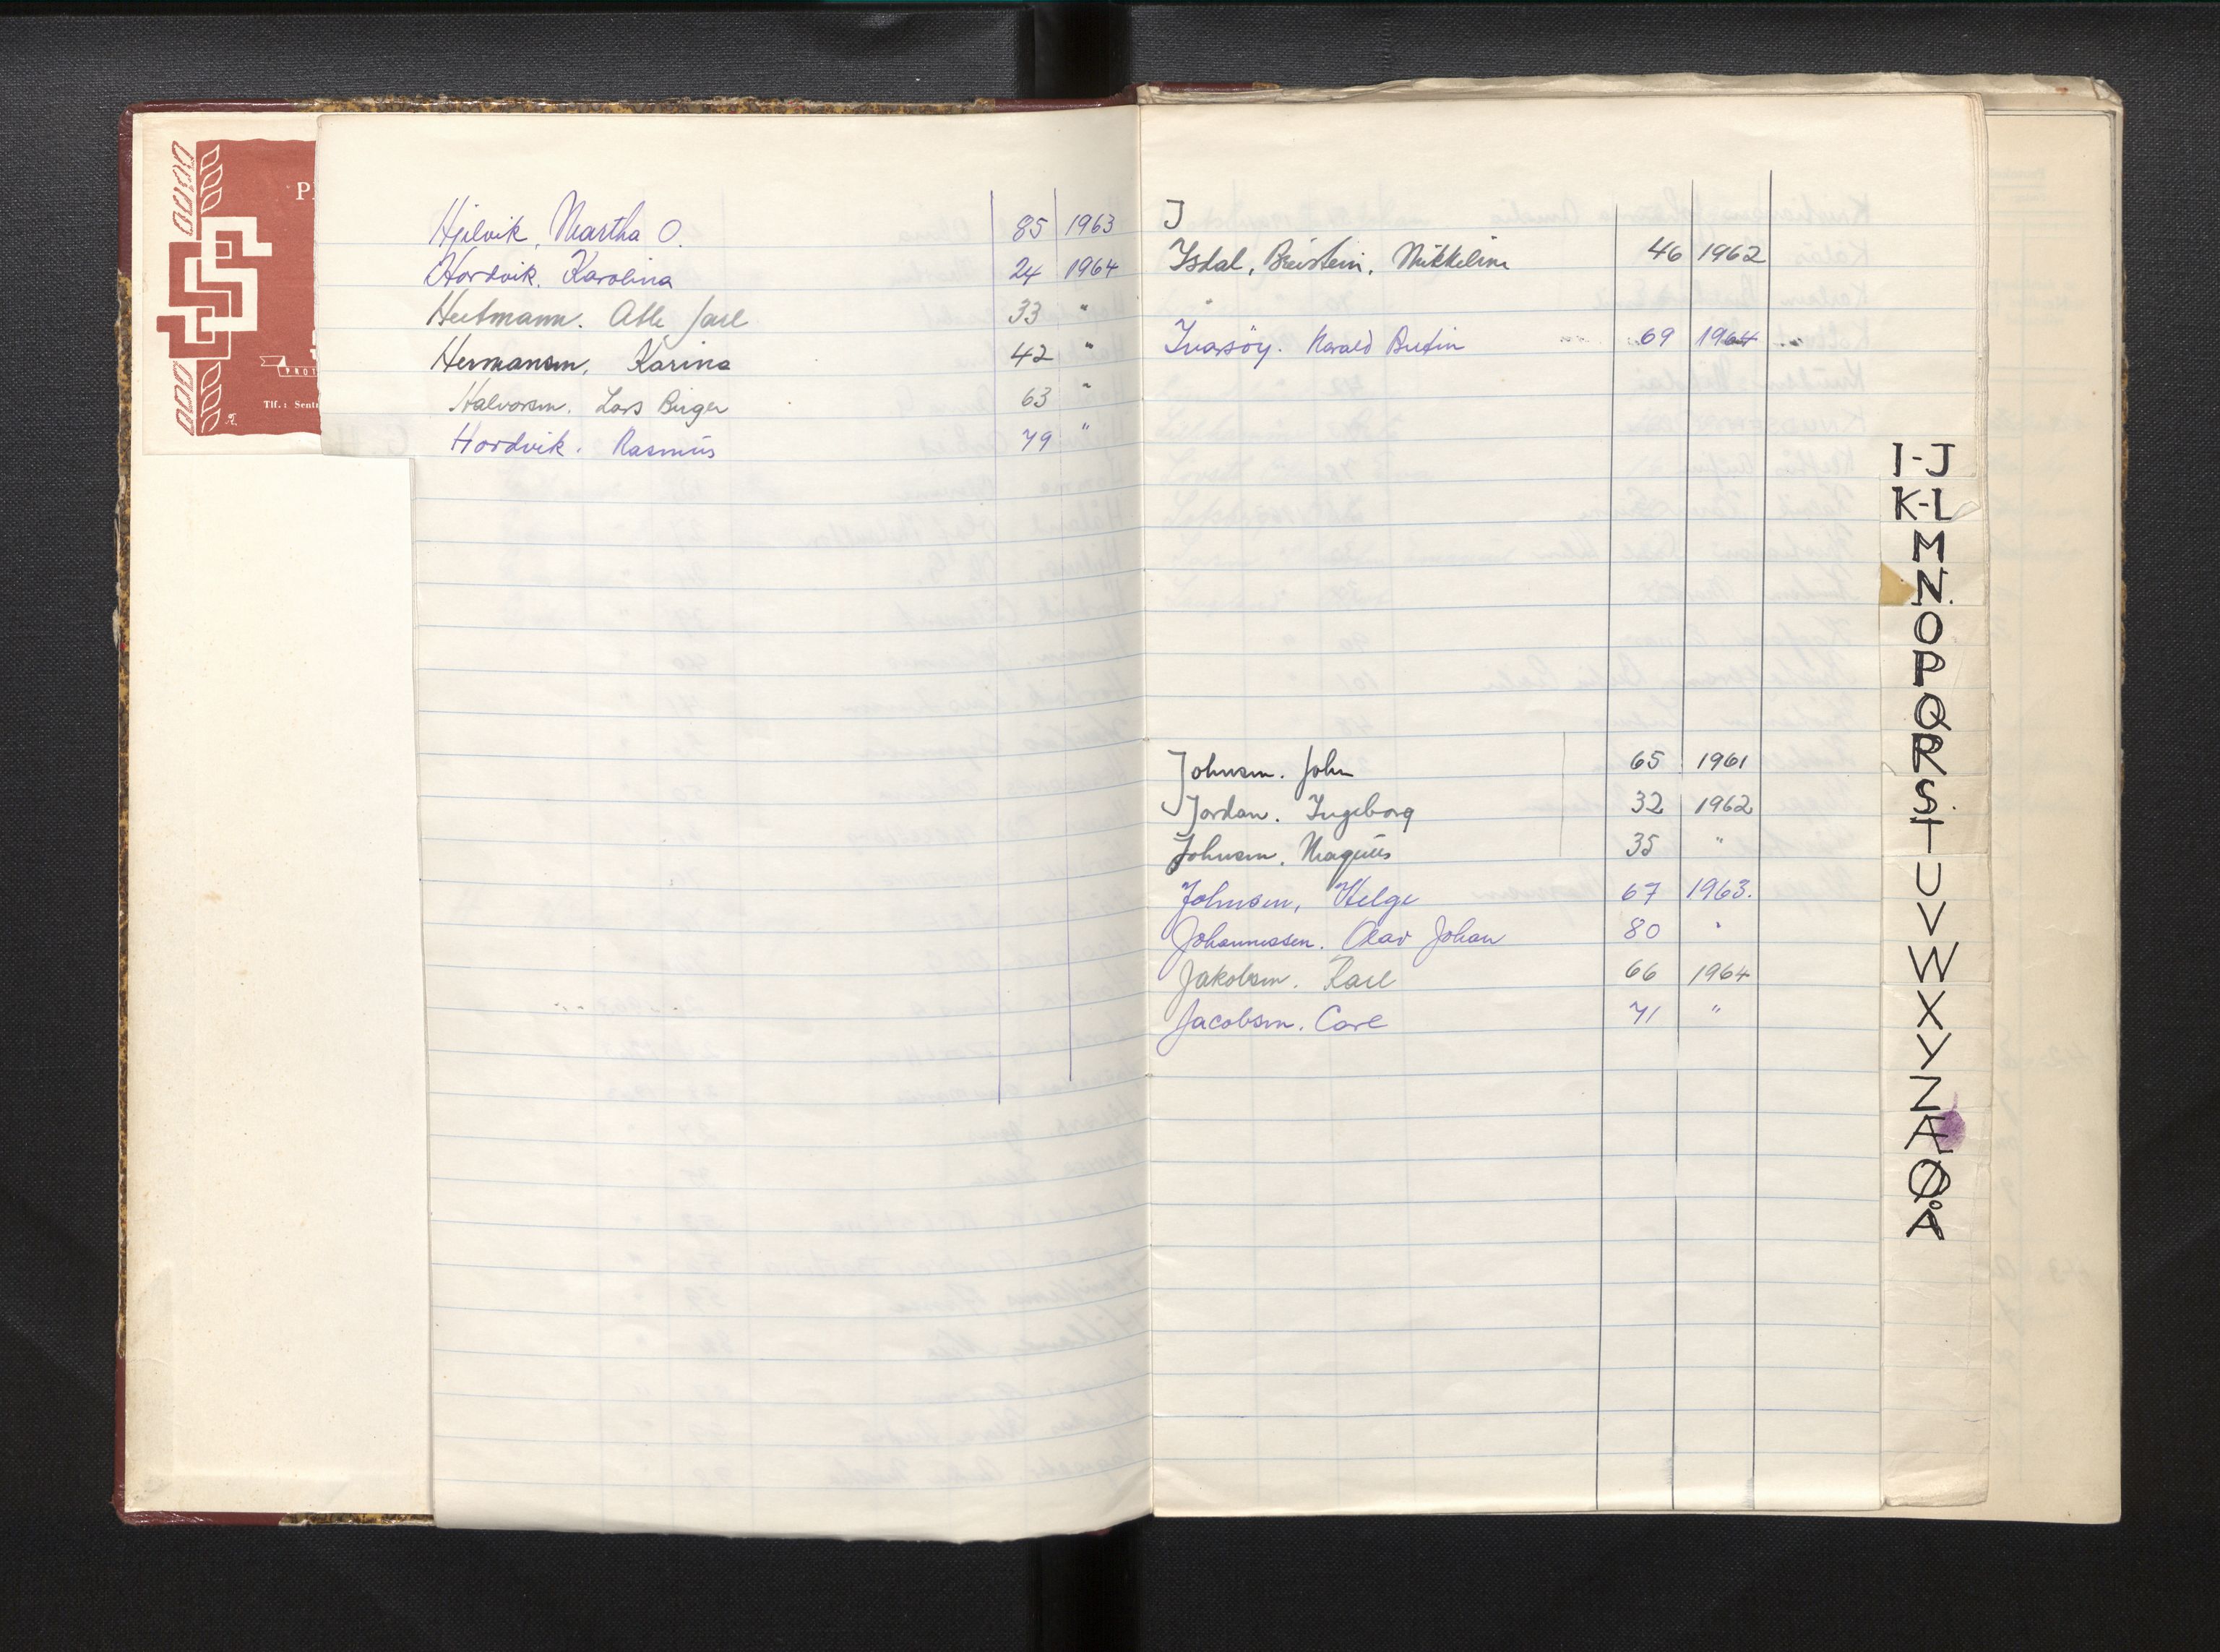 P
PROT
Tlf.: Sentr
Hjelvik, Martha O. 85 1963
Hordvik. Karolina 24 1964
Heitmann. Atle Jarl 33 "
Hermansen, Karina 42 "
Halvorsen. Lars Birger 63 "
Hordvik. Rasmus 79 "
I
Isdal, Breistein, Mikkeline 46 1962
Ivarsöy. Harald 69 1964
Johnsen. John 65 1961
Jordan. Ingeborg 32 1962
Johnsen, Magnus 35 "
Johnsen, Helge 67 1963.
Johannessen. Olav Johan 80 "
Jakobsen. Karl 66 1964
Jacobsen. Carl 71 "
I-J
K-L
M
N
O
P
Q
R
S
T
U
V
W
X
Y
Z
Æ
Ø
Å